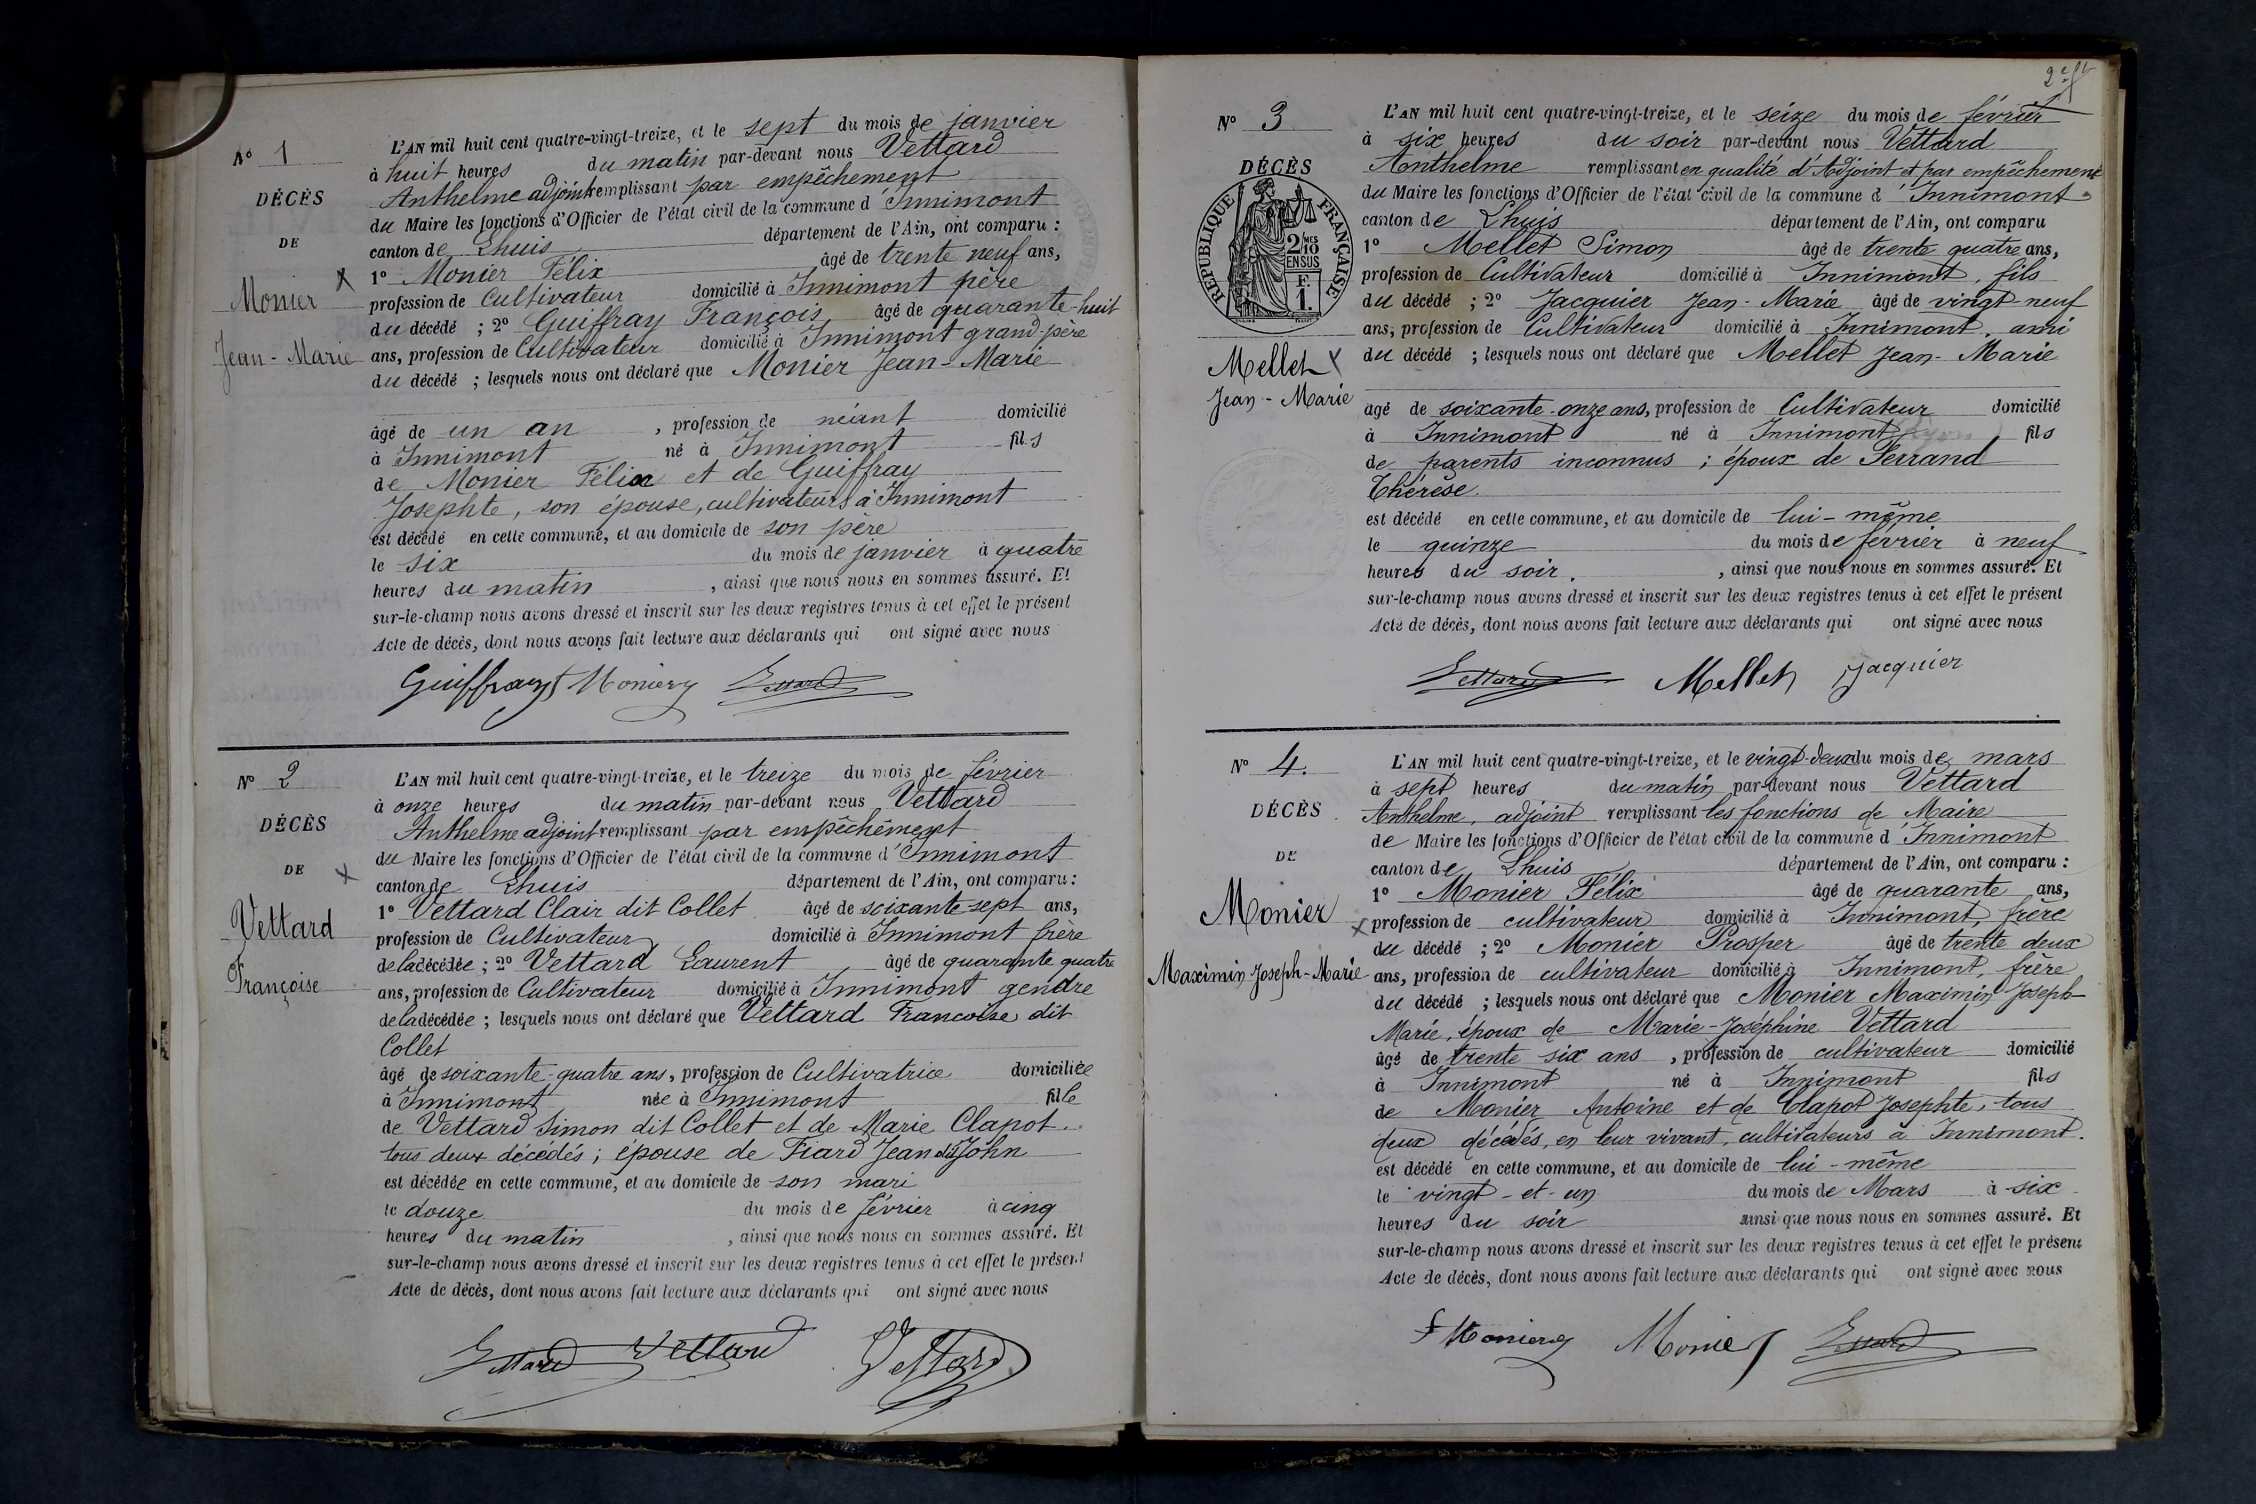 Nº 1
DÉCÈS
DE
Monier
Jean-Marie
L'AN mil huit cent quatre-vingt-treize, et le sept du mois de janvier
à huit heures du matin par-devant nous Vettard
Anthelme adjoint remplissant par empêchement
du Maire les fonctions d'Officier de l'état civil de la commune d'Innimont
canton de Lhuis département de l'Ain, ont comparu :
1º Monier Félix âgé de trente neuf ans,
profession de Cultivateur domicilié à Innimont père
du décédé ; 2º Guiffray François âgé de quarante-huit
ans, profession de Cultivateur domicilié à Innimont grand-père
du décédé ; lesquels nous ont déclaré que Monier Jean-Marie
âgé de un an , profession de néant domicilié
à Innimont né à Innimont fils
de Monier Félix et de Guiffray
Josephte, son épouse, cultivateurs à Innimont
est décédé en cette commune, et au domicile de son père
le six du mois de janvier à quatre
heures du matin , ainsi que nous nous en sommes assuré. Et
sur-le-champ nous avons dressé et inscrit sur les deux registres tenus à cet effet le présent
Acte de décès, dont nous avons fait lecture aux déclarants qui ont signé avec nous
Guiffray Monier Vettard
Nº 2
DÉCÈS
DE
Vettard
Françoise
L'AN mil huit cent quatre-vingt-treize, et le treize du mois de février
à onze heures du matin par-devant nous Vettard
Anthelme adjoint remplissant par empêchement
du Maire les fonctions d'Officier de l'état civil de la commune d'Innimont
canton de Lhuis département de l'Ain, ont comparu :
1º Vettard Clair dit Collet âgé de soixante-sept ans,
profession de Cultivateur domicilié à Innimont frère
de la décédée ; 2º Vettard Laurent âgé de quarante quatre
ans, profession de Cultivateur domicilié à Innimont gendre
de la décédée ; lesquels nous ont déclaré que Vettard Francoise dit
Collet
âgé de soixante-quatre ans, profession de Cultivatrice domiciliée
à Innimont née à Innimont fille
de Vettard Simon dit Collet et de Marie Clapot
tous deux décédés ; épouse de Fiard Jean dit John
est décédée en cette commune, et au domicile de son mari
le douze du mois de février à cinq
heures du matin , ainsi que nous nous en sommes assuré. Et
sur-le-champ nous avons dressé et inscrit sur les deux registres tenus à cet effet le présent
Acte de décès, dont nous avons fait lecture aux déclarants qui ont signé avec nous
Vettard Vettard Vettard
Nº 3
DÉCÈS
RÉPUBLIQUE FRANÇAISE
2/10 MES
EN SUS
F.
1.
Mellet
Jean-Marie
L'AN mil huit cent quatre-vingt-treize, et le seize du mois de février
à six heures du soir par-devant nous Vettard
Anthelme remplissant en qualité d'Adjoint et par empêchement
du Maire les fonctions d'Officier de l'état civil de la commune d'Innimont
canton de Lhuis département de l'Ain, ont comparu
1º Mellet Simon âgé de trente quatre ans,
profession de Cultivateur domicilié à Innimont, fils
du décédé ; 2º Jacquier Jean-Marie âgé de vingt-neuf
ans, profession de Cultivateur domicilié à Innimont, ami
du décédé ; lesquels nous ont déclaré que Mellet Jean-Marie
âgé de soixante-onze ans, profession de Cultivateur domicilié
à Innimont né à Innimont fils
de parents inconnus ; époux de Ferrand
Thérèse
est décédé en cette commune, et au domicile de lui-même
le quinze du mois de février à neuf
heures du soir. , ainsi que nous nous en sommes assuré. Et
sur-le-champ nous avons dressé et inscrit sur les deux registres tenus à cet effet le présent
Acte de décès, dont nous avons fait lecture aux déclarants qui ont signé avec nous
Vettard Mellet Jacquier
Nº 4.
DÉCÈS
DE
Monier
Maximin Joseph-Marie
L'AN mil huit cent quatre-vingt-treize, et le vingt-deux du mois de mars
à sept heures du matin par-devant nous Vettard
Anthelme, adjoint remplissant les fonctions de Maire
de Maire les fonctions d'Officier de l'état civil de la commune d'Innimont
canton de Lhuis département de l'Ain, ont comparu :
1º Monier Félix âgé de quarante ans,
profession de cultivateur domicilié à Innimont, frère
du décédé ; 2º Monier Prosper âgé de trente deux
ans, profession de cultivateur domicilié à Innimont, frère
du décédé ; lesquels nous ont déclaré que Monier Maximin Joseph-
Marie, époux de Marie-Joséphine Vettard
âgé de trente six ans , profession de cultivateur domicilié
à Innimont né à Innimont fils
de Monier Antoine et de Clapot Josephte, tous
deux décédés, en leur vivant, cultivateurs à Innimont.
est décédé en cette commune, et au domicile de lui-même
le vingt-et-un du mois de Mars à six
heures du soir ainsi que nous nous en sommes assuré. Et
sur-le-champ nous avons dressé et inscrit sur les deux registres tenus à cet effet le présent
Acte de décès, dont nous avons fait lecture aux déclarants qui ont signé avec nous
F Monier Monier Vettard